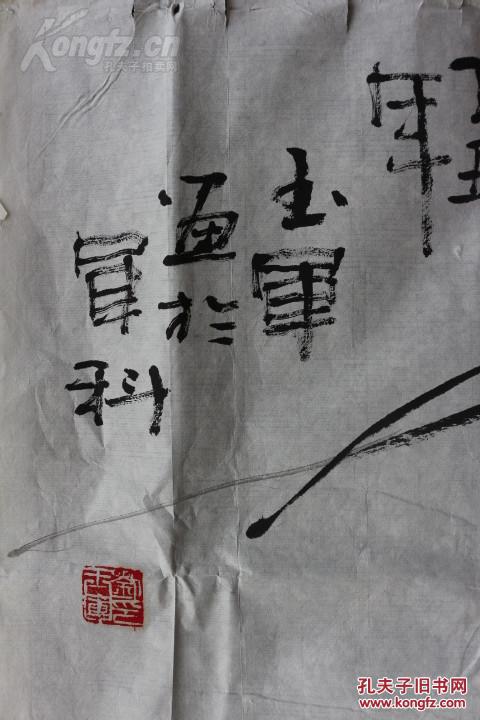 Kongfz.cn
孔夫子拍卖网
年
玉軍
画於
軍科
孔夫子旧书网
www.kongfz.com